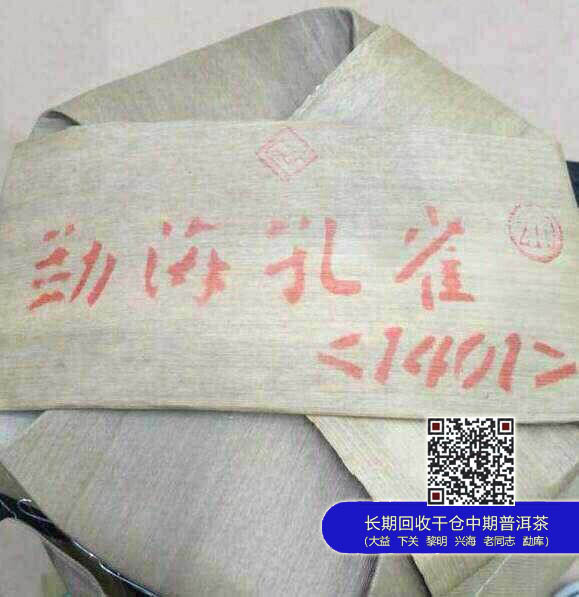 勐海孔雀
<1401>
长期回收干仓中期普洱茶
(大益 下关 黎明 兴海 老同志 勐库)